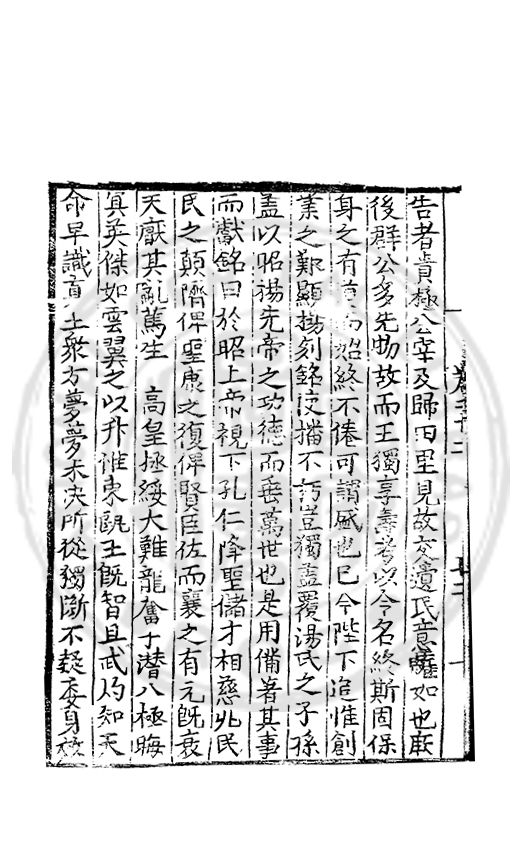 告者貴極公宰及歸田里見故交遺民意驩如也厥
後群公多先物故而王獨享壽考以令名終斯固保
身之有終不倦可謂盛也已今陛下追惟創
業之艱顯揚刻銘播不朽豈獨盖覆湯氏之子孫
盖以昭揚先帝之功德而垂萬世也是用備著其事
而獻銘曰於昭上帝視下孔仁降聖儲才相慈兆民
民之顛隮俾聖康之復俾賢臣佐而襄之有元旣衰
天厭其亂篤生　高皇拯綏大難龍奮于潛八極晦
冥英傑如雲翼之以升惟東甌王旣智且武灼知天
命早識真主衆方夢夢未决所從獨斷不疑委身